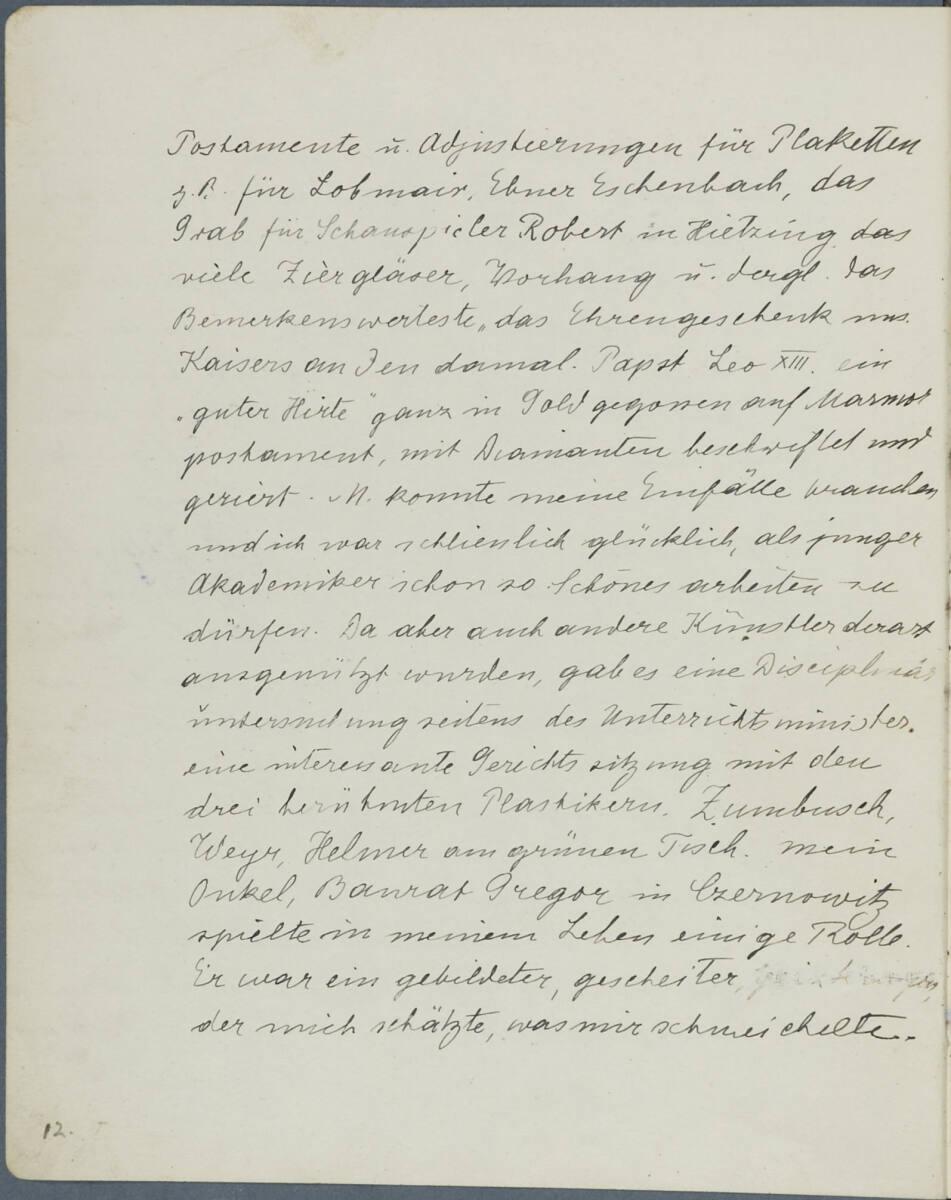 Postamente u. Adjustierungen für Plaketten
z.B. für Lobmair, Ebner Eschenbach, das
Grab für Schauspieler Robert in Hietzing das
viele Ziergläser, Vorhang u. dergl. das
Bemerkenswerteste „das Ehrengeschenk uns.
Kaisers an den damal. Papst Leo XIII. ein
„guter Hirte" ganz in Gold gegossen auf Marmor
postament, mit Diamanten beschriftet und
geziert. M. konnte meine Einfälle brauchen
und ich war schliesslich glücklich, als junger
Akademiker schon so Schönes arbeiten zu
dürfen. Da aber auch andere Künstler derart
ausgenützt wurden, gab es eine Disciplinär
untersuchung seitens des Unterrichtsminister.
eine interessante Gerichtssitzung mit den
drei berühmten Plastikern. Zumbusch,
Weyr, Helmer am grünen Tisch. mein
Onkel, Baurat Gregor in Czernowitz
spielte in meinem Leben einige Rolle.
Er war ein gebildeter, gescheiter,
der mich schätzte, was mir schmeichelte.
12.